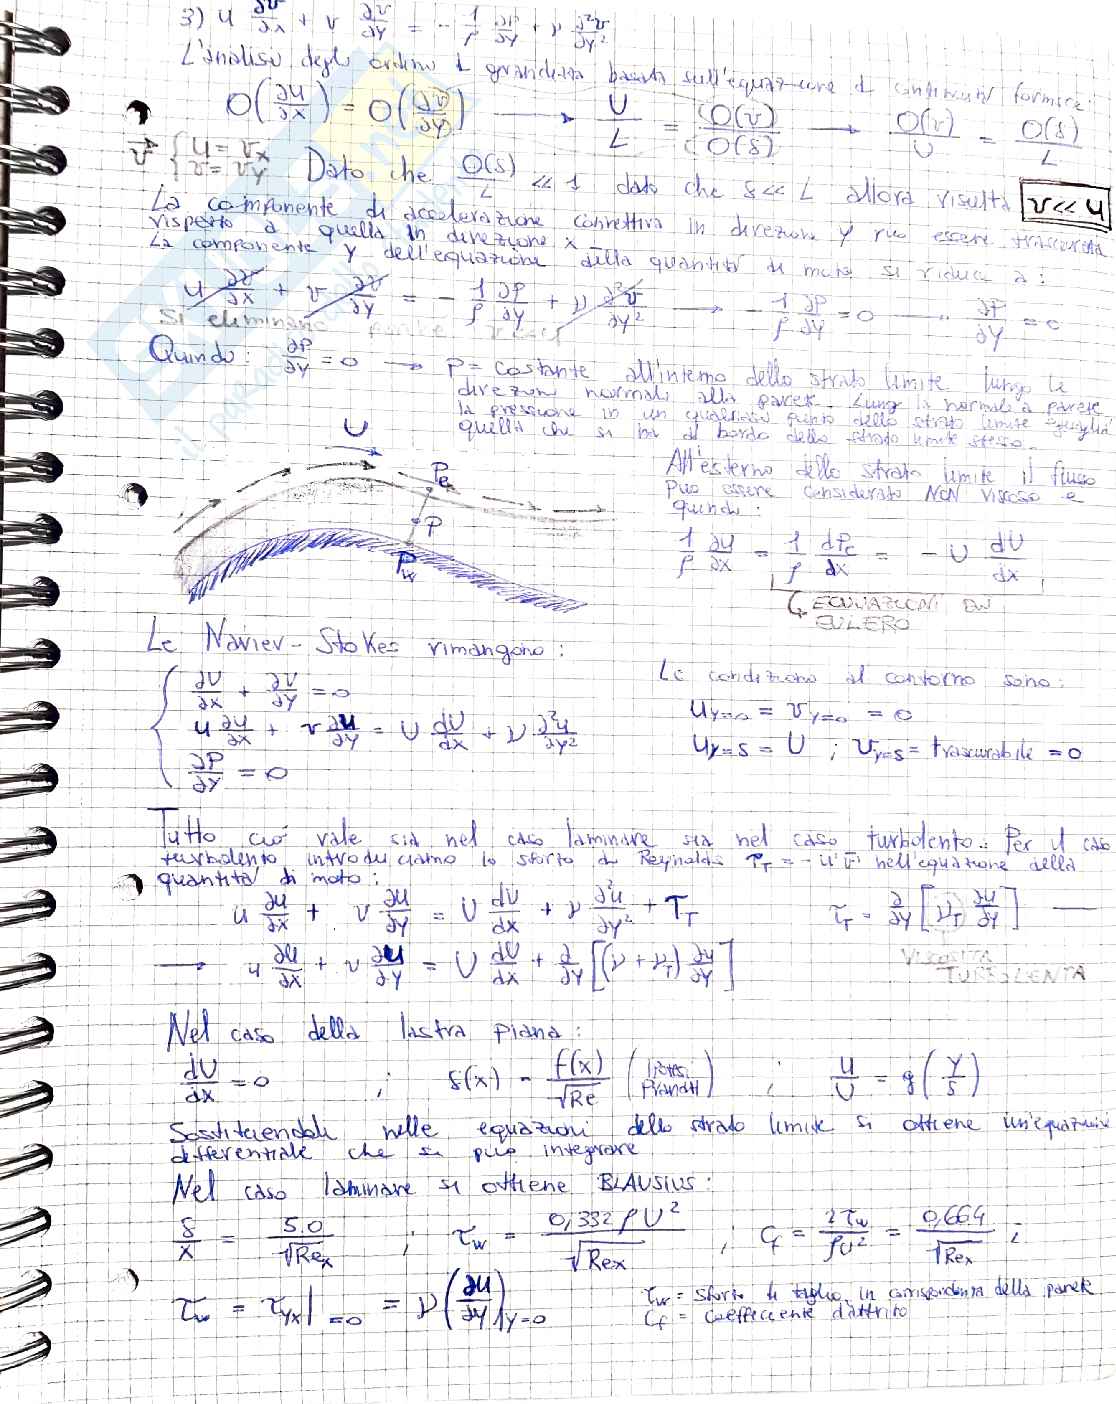 3) u ∂v/∂x + v ∂v/∂y = - 1/ρ ∂P/∂y + ν ∂²v/∂y²
L'analisi degli ordini di grandezza basata sull'equazione di continuità fornisce:
O(∂u/∂x) = O(∂v/∂y) → U/L = O(v)/O(δ) → O(v)/U = O(δ)/L
v { u = vx
v = vy
Dato che O(δ)/L << 1 dato che δ << L allora risulta v << u
La componente di accelerazione convettiva in direzione y può essere trascurata
rispetto a quella in direzione x
La componente y dell'equazione della quantità di moto si riduce a:
u ∂v/∂x + v ∂v/∂y = - 1/ρ ∂P/∂y + ν ∂²v/∂y² → - 1/ρ ∂P/∂y = 0 → ∂P/∂y = 0
Si eliminano perchè v<<u
Quindi: ∂P/∂y = 0 → P = costante all'interno dello strato limite lungo le
direzioni normali alla parete. Lungo la normale a parete
la pressione in un qualsiasi punto dello strato limite eguaglia
quella che si ha al bordo dello strato limite stesso.
U
Pe
P
Pw
All'esterno dello strato limite il flusso
può essere considerato NON viscoso e
quindi:
1/ρ ∂u/∂x = 1/ρ dPe/dx = - U dU/dx
EQUAZIONI DI
EULERO
Le Navier-Stokes rimangono:
∂U/∂x + ∂V/∂y = 0
u ∂u/∂x + v ∂u/∂y = U dU/dx + ν ∂²u/∂y²
∂P/∂y = 0
Le condizioni al contorno sono:
u y=0 = v y=0 = 0
u y=δ = U ; v y=δ = trascurabile = 0
Tutto ciò vale sia nel caso laminare sia nel caso turbolento. Per il caso
turbolento introduciamo lo sforzo di Reynolds τT = - u'v' nell'equazione della
quantità di moto:
u ∂u/∂x + v ∂u/∂y = U dU/dx + ν ∂²u/∂y² + τT
τT = ∂/∂y [νT ∂u/∂y] —
→ u ∂u/∂x + v ∂u/∂y = U dU/dx + ∂/∂y [(ν + νT) ∂u/∂y]
VISCOSITÀ
TURBOLENTA
Nel caso della lastra piana:
dU/dx = 0 ; δ(x) = f(x)/√Re (Ipotesi Prandtl) ; u/U = g(y/δ)
Sostituendole nelle equazioni dello strato limite si ottiene un'equazione
differenziale che si può integrare
Nel caso laminare si ottiene BLAUSIUS:
δ/x = 5.0/√Rex ; τw = 0,332 ρU²/√Rex ; Cf = 2τw/ρU² = 0,664/√Rex ;
τw = τyx| =0 = ν (∂u/∂y) y=0
τw = sforzo di taglio in corrispondenza della parete
Cf = coefficiente d'attrito